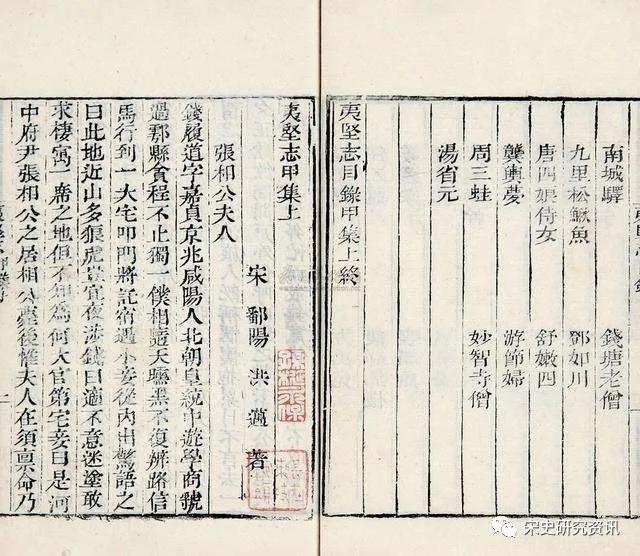 南城驛 錢塘老僧
九里松鰍魚 鄧如川
唐四娘侍女 舒嫩四
龔輿夢 游節婦
周三蛙 妙智寺僧
湯省元
夷堅志目錄甲集上終
夷堅志甲集上
宋 鄱陽 洪邁 著
張相公夫人
錢履道字嘉貞京兆咸陽人北朝皇統中遊學商虢
過鄠縣貪程不止獨一僕相隨天曛黑不復辨路信
馬行到一大宅叩門將託宿遇小妾從內出驚語之
曰此地近山多狼虎豈宜夜涉錢曰適不意迷塗敢
求棲寓一席之地但不知為何大官第宅妾曰是河
中府尹張相公之居相公薨後惟夫人在須稟命乃
宋史研究资讯